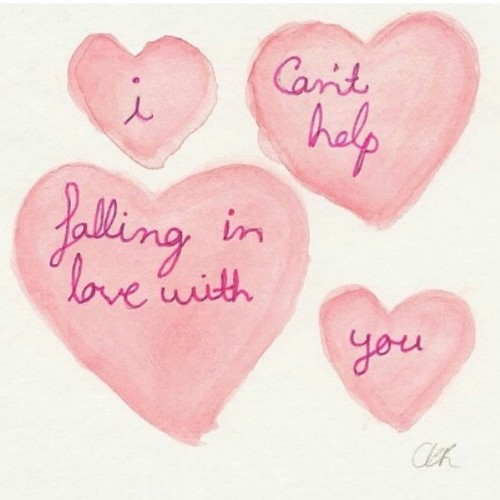 i
Can't
help
falling in
love with
you